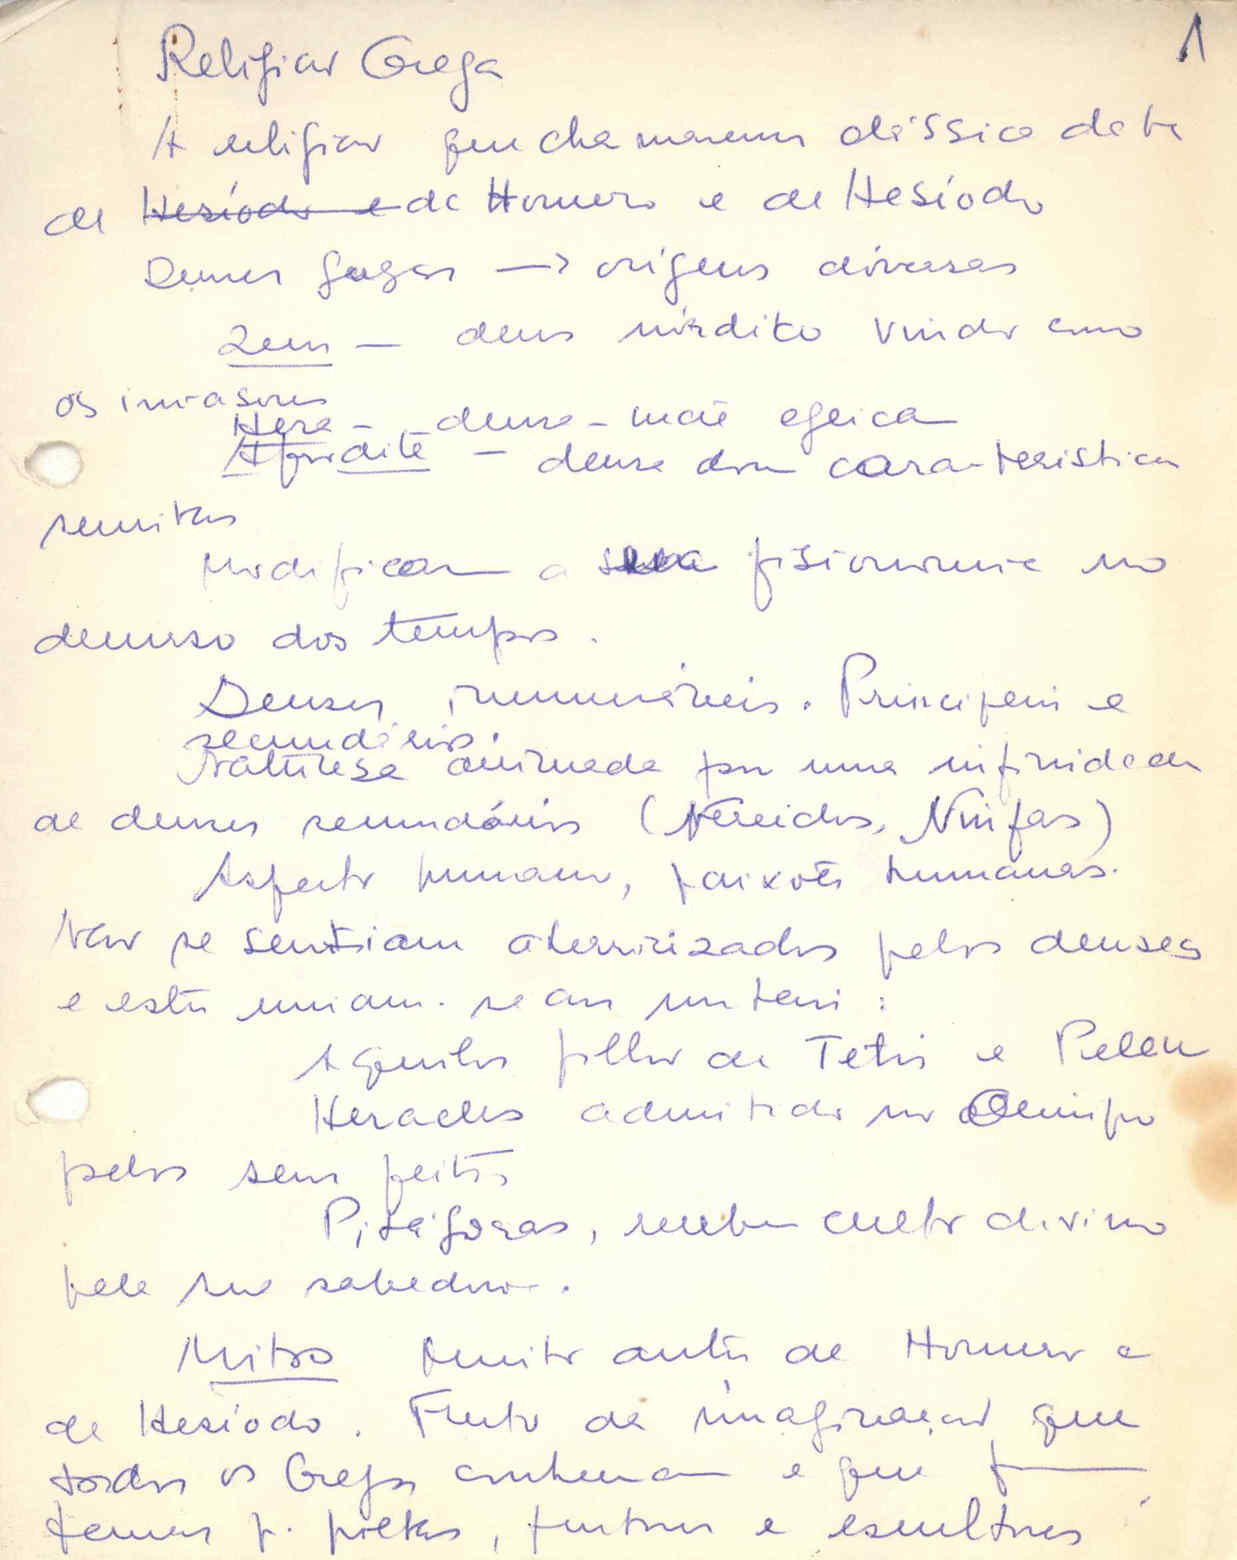 1
Religião Grega
A religião que chamamos clássica data
de Hesíodo e de Homero e de Hesíodo
Deuses gregos → origens diversas
Zeus — deus nórdico vindo com
os invasores
Hera - deusa-mãe egeica
Afrodite - deusa com características
semitas
Modificam a sua fisionomia no
decurso dos tempos.
Deuses inumeráveis. Principais e
secundários.
Natureza animada por uma infinidade
de deuses secundários (Nereidas, Ninfas)
Aspecto humano, paixões humanas.
Não se sentiam aterrorizados pelos deuses
e estes uniam-se aos mortais:
Aquiles filho de Tetis e Peleu
Heracles admitido no Olimpo
pelos seus feitos
Pitágoras, recebeu culto divino
pela sua sabedoria.
Mitos Muito antes de Homero e
de Hesíodo. Fruto da imaginação que
todos os Gregos conheciam e que
temas p. poetas, pintores e escultores